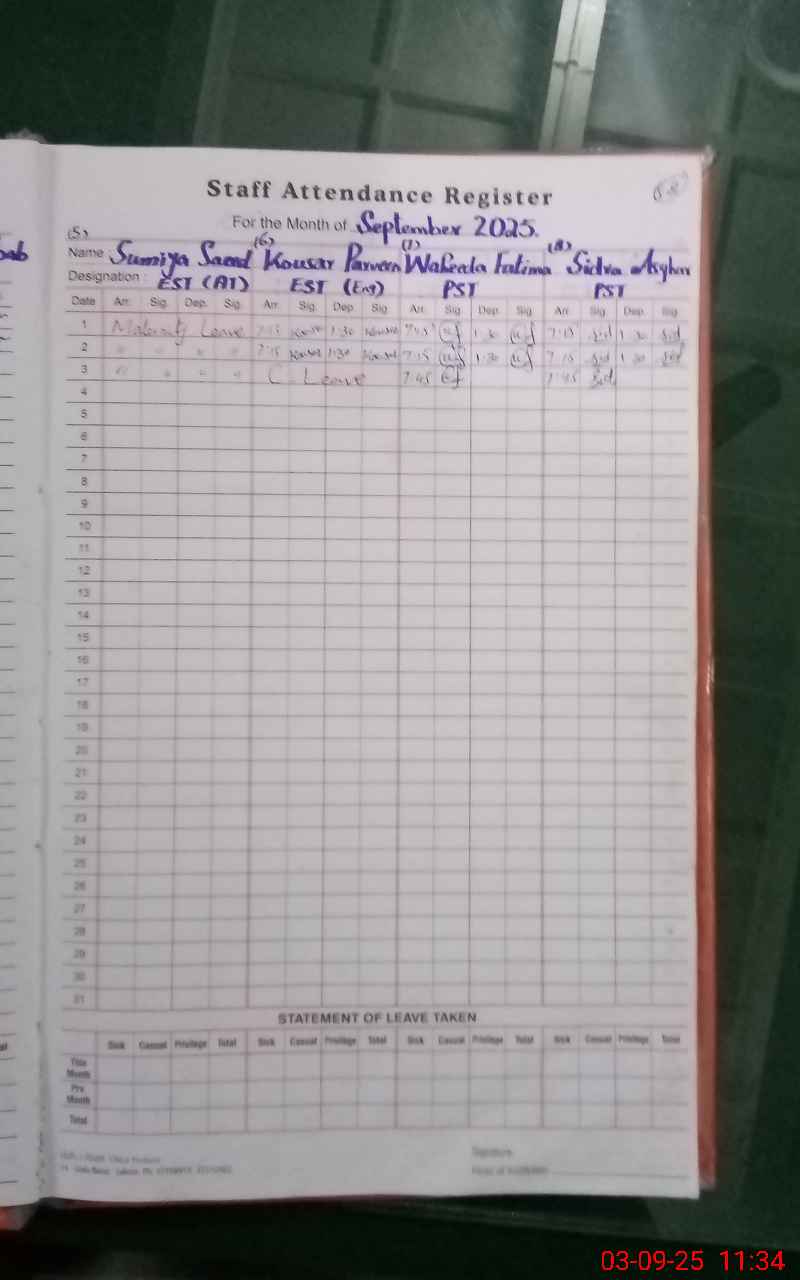 Staff Attendance Register
For the Month of September 2025.
(5) (6) (7) (8)
Name : Sumiya Saeed Kousar Parveen Waheala Fatima Sidra Asghar
Designation : EST (AT) EST (Eng) PST PST
Date Arr. Sig. Dep. Sig. Arr. Sig. Dep. Sig. Arr. Sig. Dep. Sig. Arr. Sig. Dep. Sig.
1 Maternity Leave 7:15 Kousar 1:30 Kousar 7:15 1:30 7:15 Sid 1:30 Sid
2 " " " " 7:15 Kousar 1:30 Kousar 7:15 1:30 7:15 Sid 1:30 Sid
3 " " " " C. Leave 7:45 7:45 Sid
4
5
6
7
8
9
10
11
12
13
14
15
16
17
18
19
20
21
22
23
24
25
26
27
28
29
30
31
STATEMENT OF LEAVE TAKEN
Sick Casual Privilege Total Sick Casual Privilege Total Sick Casual Privilege Total Sick Casual Privilege Total
This Month
Pre Month
Total
Signature
03-09-25 11:34